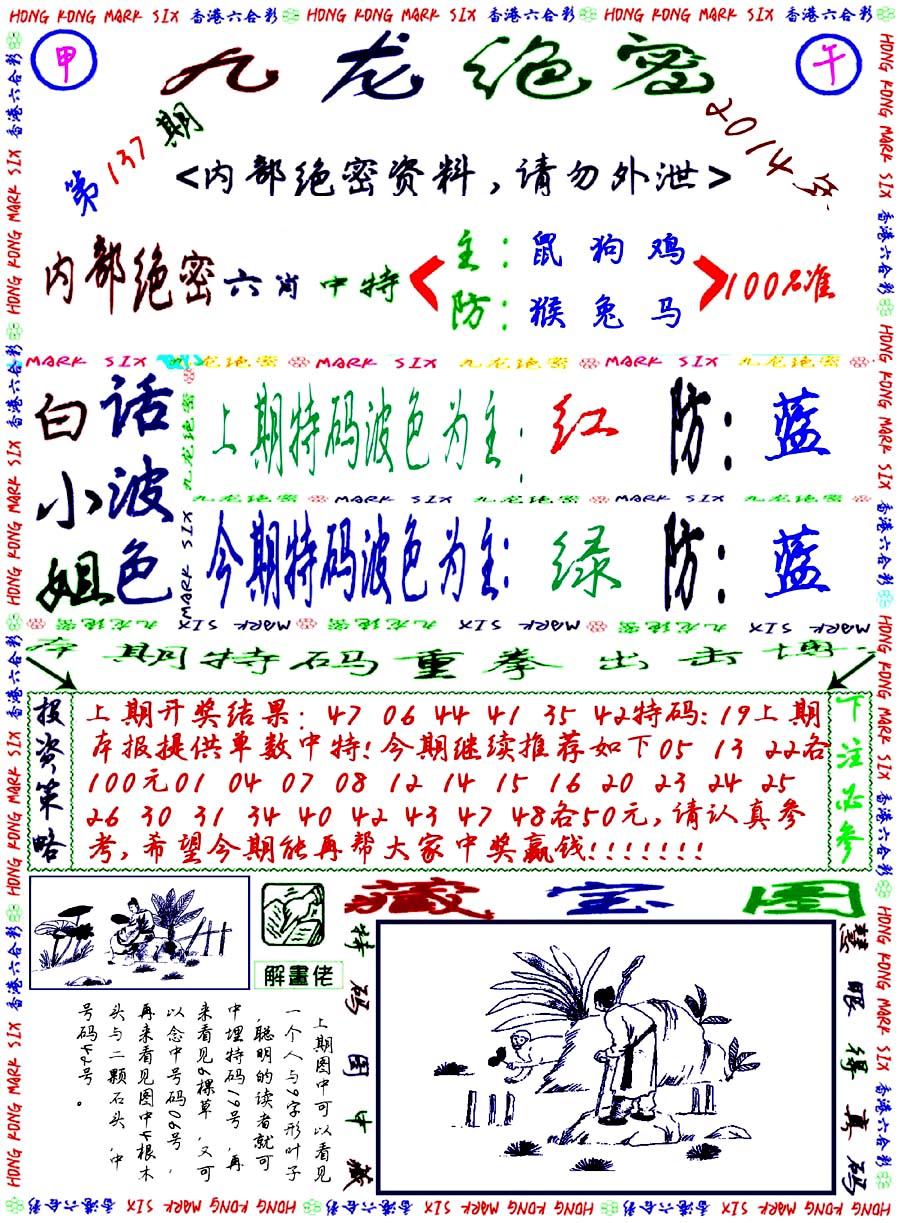 HONG KONG MARK SIX 香港六合彩 HONG KONG MARK SIX 香港六合彩 HONG KONG MARK SIX 香港六合彩
甲
九龙绝密
午
第137期
2014年
<内部绝密资料,请勿外泄>
内部绝密六肖中特
主:鼠狗鸡
防:猴兔马
100%准
MARK SIX 九龙绝密 MARK SIX 九龙绝密 MARK SIX 九龙绝密
白话
小波
姐色
上期特码波色为主:红 防:蓝
九龙绝密 MARK SIX 九龙绝密 MARK SIX 九龙绝密
今期特码波色为主:绿 防:蓝
MARK SIX 九龙绝密 MARK SIX 九龙绝密 MARK SIX 九龙绝密
本期特码重拳出击博
投资策略
上期开奖结果:47 06 44 41 35 42特码:19上期
本报提供单数中特!今期继续推荐如下05 13 22各
100元01 04 07 08 12 14 15 16 20 23 24 25
26 30 31 34 40 42 43 47 48各50元,请认真参
考,希望今期能再帮大家中奖赢钱!!!!!!!
下注必参
藏宝图
解畫佬
特码图中藏
慧眼得真码
上期图中可以看见
一个人与9字形叶子
,聪明的读者就可
中埋特码19号,再
来看见6棵草,又可
以念中号码06号,
再来看见图中4根木
头与二颗石头,中
号码42号。
HONG KONG MARK SIX 香港六合彩 HONG KONG MARK SIX 香港六合彩 HONG KONG MARK SIX 香港六合彩